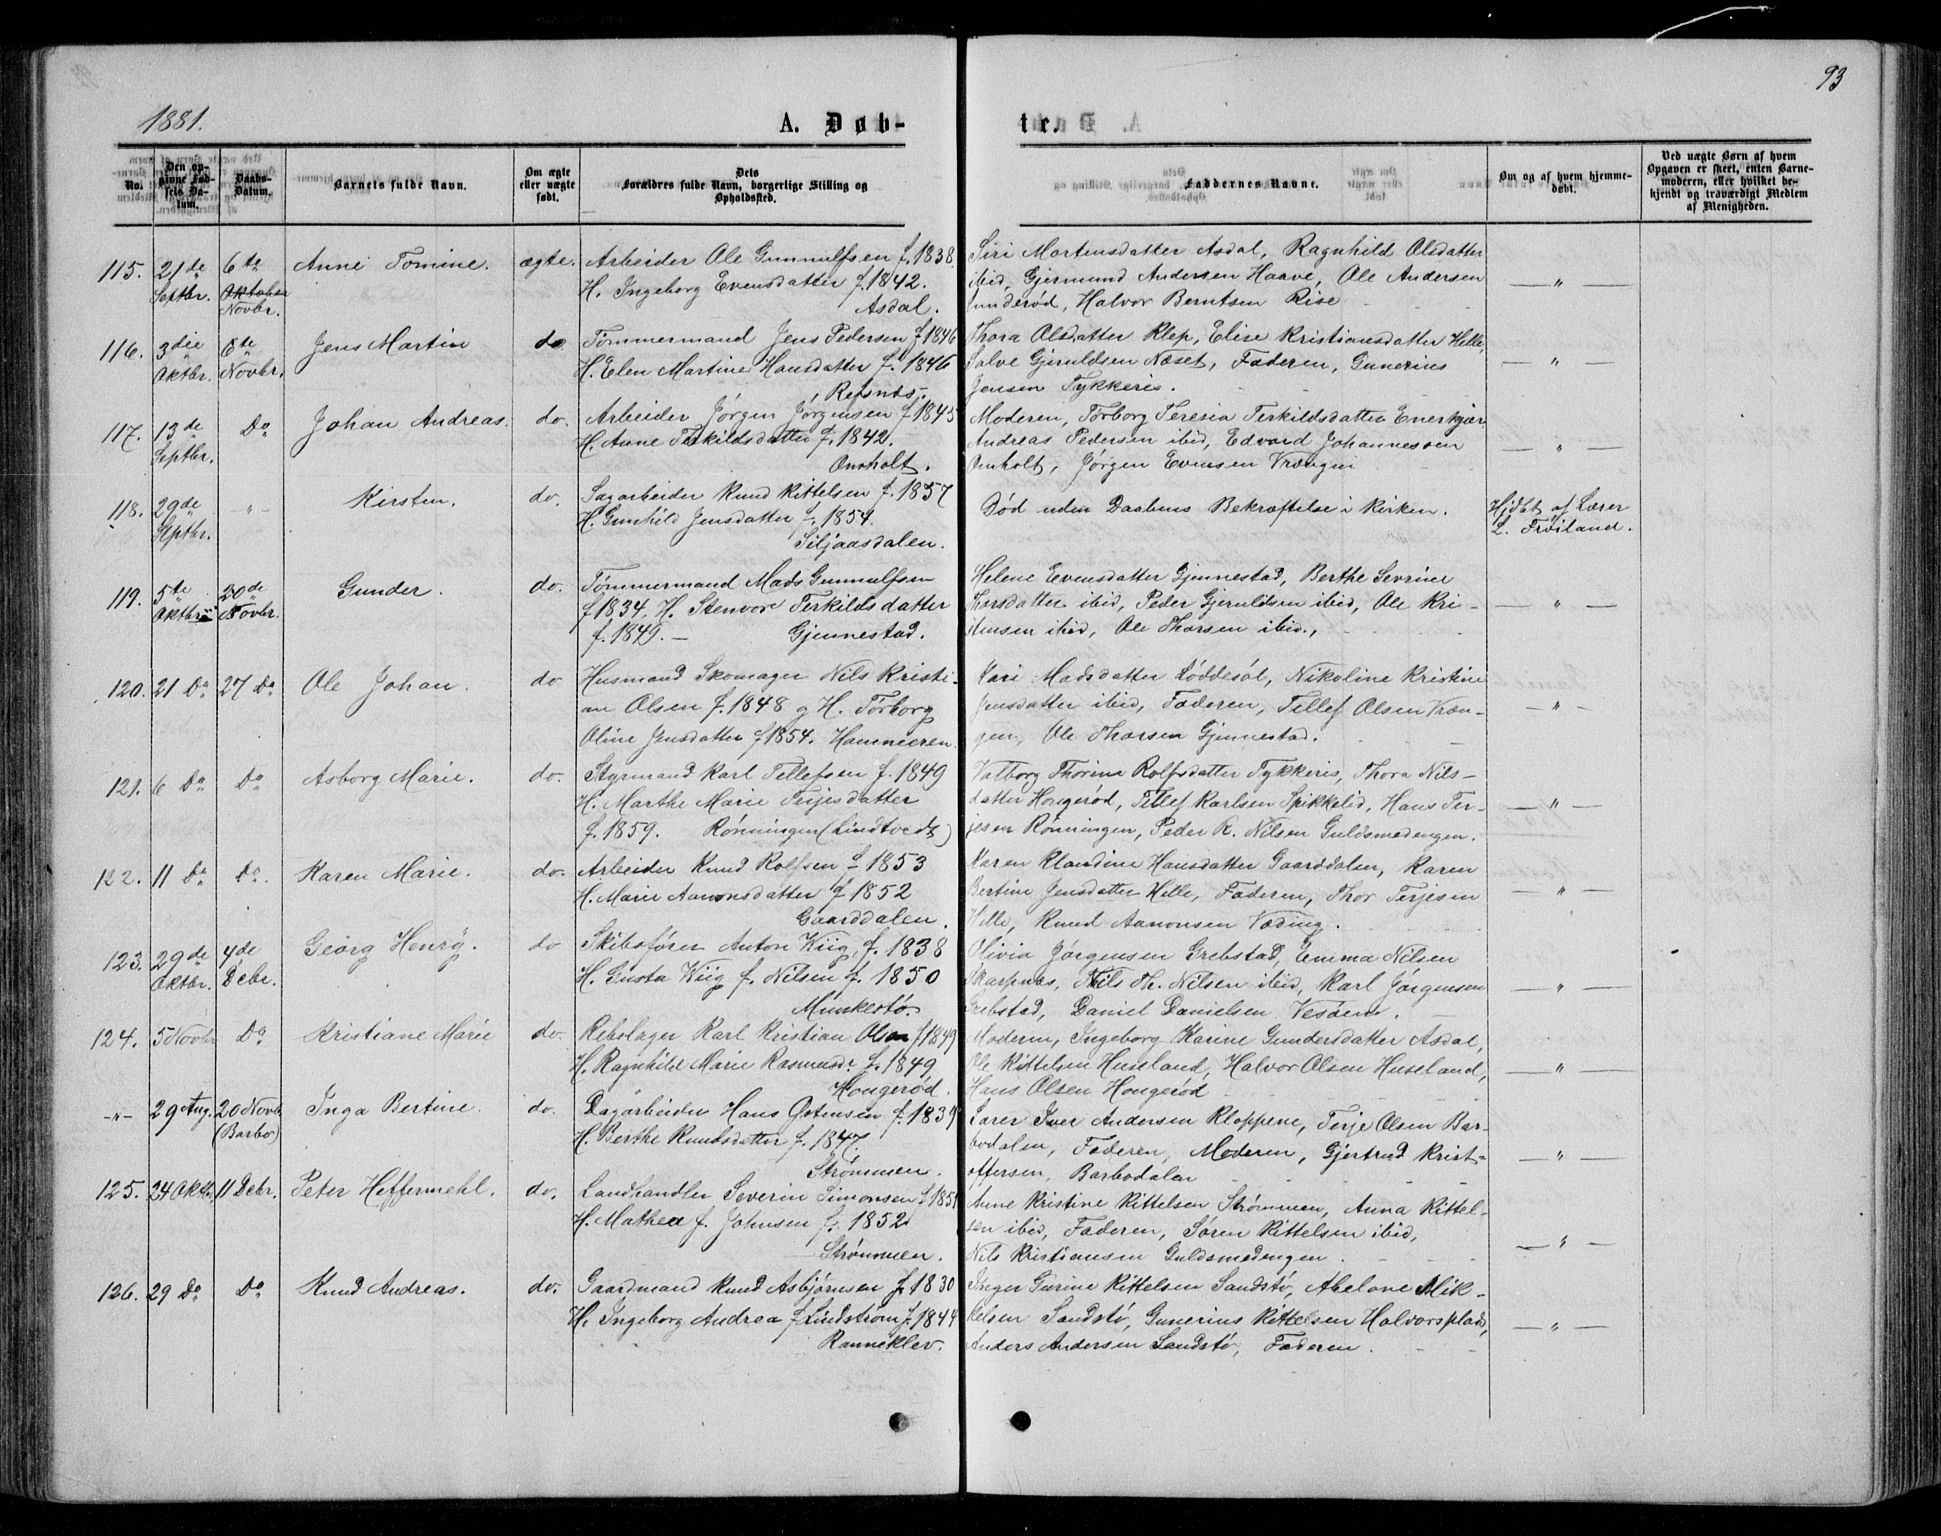 1881.
93
A. Døb-
te.
No.
Den opgivne Fødsels Datum.
Daabs-Datum.
Barnets fulde Navn.
Om ægte eller uægte født.
Dets Forældres fulde Navn, borgerlige Stilling og Opholdssted.
Faddernes Navne.
Om og af hvem hjemmedøbt.
Ved uægte Børn af hvem Opgaven er skeet, enten Barnemoderen, eller hvilket bekjendt og troværdigt Medlem af Menigheden.
115. 21de Septbr. 6te Oktober Novbr. Anne Tomine. ægte.
Arbeider Ole Gunnulfsen f. 1838
H. Ingeborg Evensdatter f. 1842.
Asdal.
Siri Mortensdatter Asdal, Ragnhild Olsdatter
ibid, Gjermund Andersen Haave, Ole Andersen
Halvor Berntsen Rise
— " —
116. 3die Oktbr. 6te Novbr. Jens Martin do
Tømmermand Jens Pedersen f 1846
H. Elen Martine Hansdatter f. 1846
Refsnæs.
Thora Olsdatter Klep, Elise Kristiansdatter Helle,
Salve Gjeruldsen Næset, Faderen, Gunerius
Jensen Tykkeris.
— " —
117. 13de Septbr. Do Johan Andreas. do.
Arbeider Jørgen Jørgensen f 1845
H. Anne Terkildsdatter f. 1842.
Omholt.
Moderen, Torborg Teresia Terkildsdatter Enerkjær
Andreas Pedersen ibid, Edvard Johannessen
Omholt, Jørgen Evensen Vrængen
— " —
118. 29de Septbr. " Kirsten. do.
Sagarbeider Knud Kittelsen f. 1857
H. Gunhild Jensdatter f. 1854.
Siljaasdalen.
Død uden Daabens Bekræftelse i Kirken.
Hjdbt af Lærer
L. Frøiland.
119. 5te Oktbr. 20de Novbr. Gunder. do.
Tømmermand Mads Gunnulfsen
f 1834. H. Stenvor Terkildsdatter
f. 1849. — Gjennestad.
Helene Evensdatter Gjennestad, Berthe Sevrine
Thorsdatter ibid, Peder Gjeruldsen ibid, Ole Kri-
stensen ibid, Ole Thorsen ibid.,
— " —
120. 21 Do 27 Do Ole Johan. do
Husmand Skomager Nils Kristi-
an Olsen f. 1848 og H. Torborg
Oline Jensdatter f 1854. Hammeren.
Kari Madsdatter Løddesøl, Nikoline Kristine
Jensdatter ibid, Faderen, Tellef Olsen Vræn-
gen, Ole Thorsen Gjennestad.
— " —
121. 6 Do Do Asborg Marie. do.
Styrmand Karl Tellefsen f. 1849
H. Marthe Marie Terjesdatter
f. 1859. Rønningen (Lindtvedt)
Valborg Thorina Rolfsdatter Tykkeris, Thora Nils-
datter Hougerød, Tellef Karlsen Spikkelid, Hans Ter-
jesen Rønningen, Peder K. Nilsen Guldsmedengen.
— " —
122. 11 Do Do. Karen Marie. do.
Arbeider Knud Rolfsen f 1853
H. Marie Aanonsdatter f 1852
Gaarddalen.
Karen Klandine Hansdatter Gaarddalen, Karen
Bertine Jensdatter Helle, Faderen, Thor Terjesen
Helle, Knud Aanonsen Vøding.
— " —
123. 29de Oktbr. 4de Debr. Georg Henry. do
Skibsfører Anton Wiig f. 1838
H. Gusta Wiig f. Nilsen f. 1850
Munkestø
Olivia Jørgensen Grebstad, Emma Nilsen
Skarpnæs, Nils Th. Nilsen ibid, Karl Jørgensen
Grebstad, Daniel Danielsen Vesøen.
— " —
124. 5 Novbr Do Kristiane Marie do.
Rebslager Karl Kristian Olsen f 1849
H. Ragnhild Marie Rasmusdr. f. 1849
Hougerød.
Moderen, Ingeborg Karine Gundersdatter Asdal,
Ole Kittelsen Huseland, Halvor Olsen Huseland,
Hans Olsen Hougerød
— " —
-"- 29 Aug. 20 Novb. (Barbo) Inga Bertine. do.
Dagarbeider Hans Ostensen f. 1839
H. Berthe Knudsdatter f. 1847
Strømmen.
Lærer Iver Andersen Kloppene, Terje Olsen Bar-
bodalen, Faderen, Moderen, Gjertrud Krist-
offersen, Barbodalen
— " —
125. 24 Oktb. 11 Debr. Peter Heffermehl. do.
Landhandler Severin Simonsen f. 1851
H. Mathea f. Johnsen f. 1852
Strømmen.
Anne Kristine Kittelsen Strømmen, Anna Kittel-
sen ibid, Faderen, Søren Kittelsen ibid,
Nils Kristiansen Guldsmedengen.
— " —
126. 29 Do Do Knud Andreas. do.
Gaardmand Knud Asbjørnsen f. 1830
H. Ingeborg Andrea f Lindstrøm f. 1844
Ranneklev.
Inger Gurine Kittelsen Sandstø, Abelone Mik-
kelsen Sandstø, Gunerius Kittelsen Halvorsplads,
Anders Andersen Sandstø, Faderen.
— " —